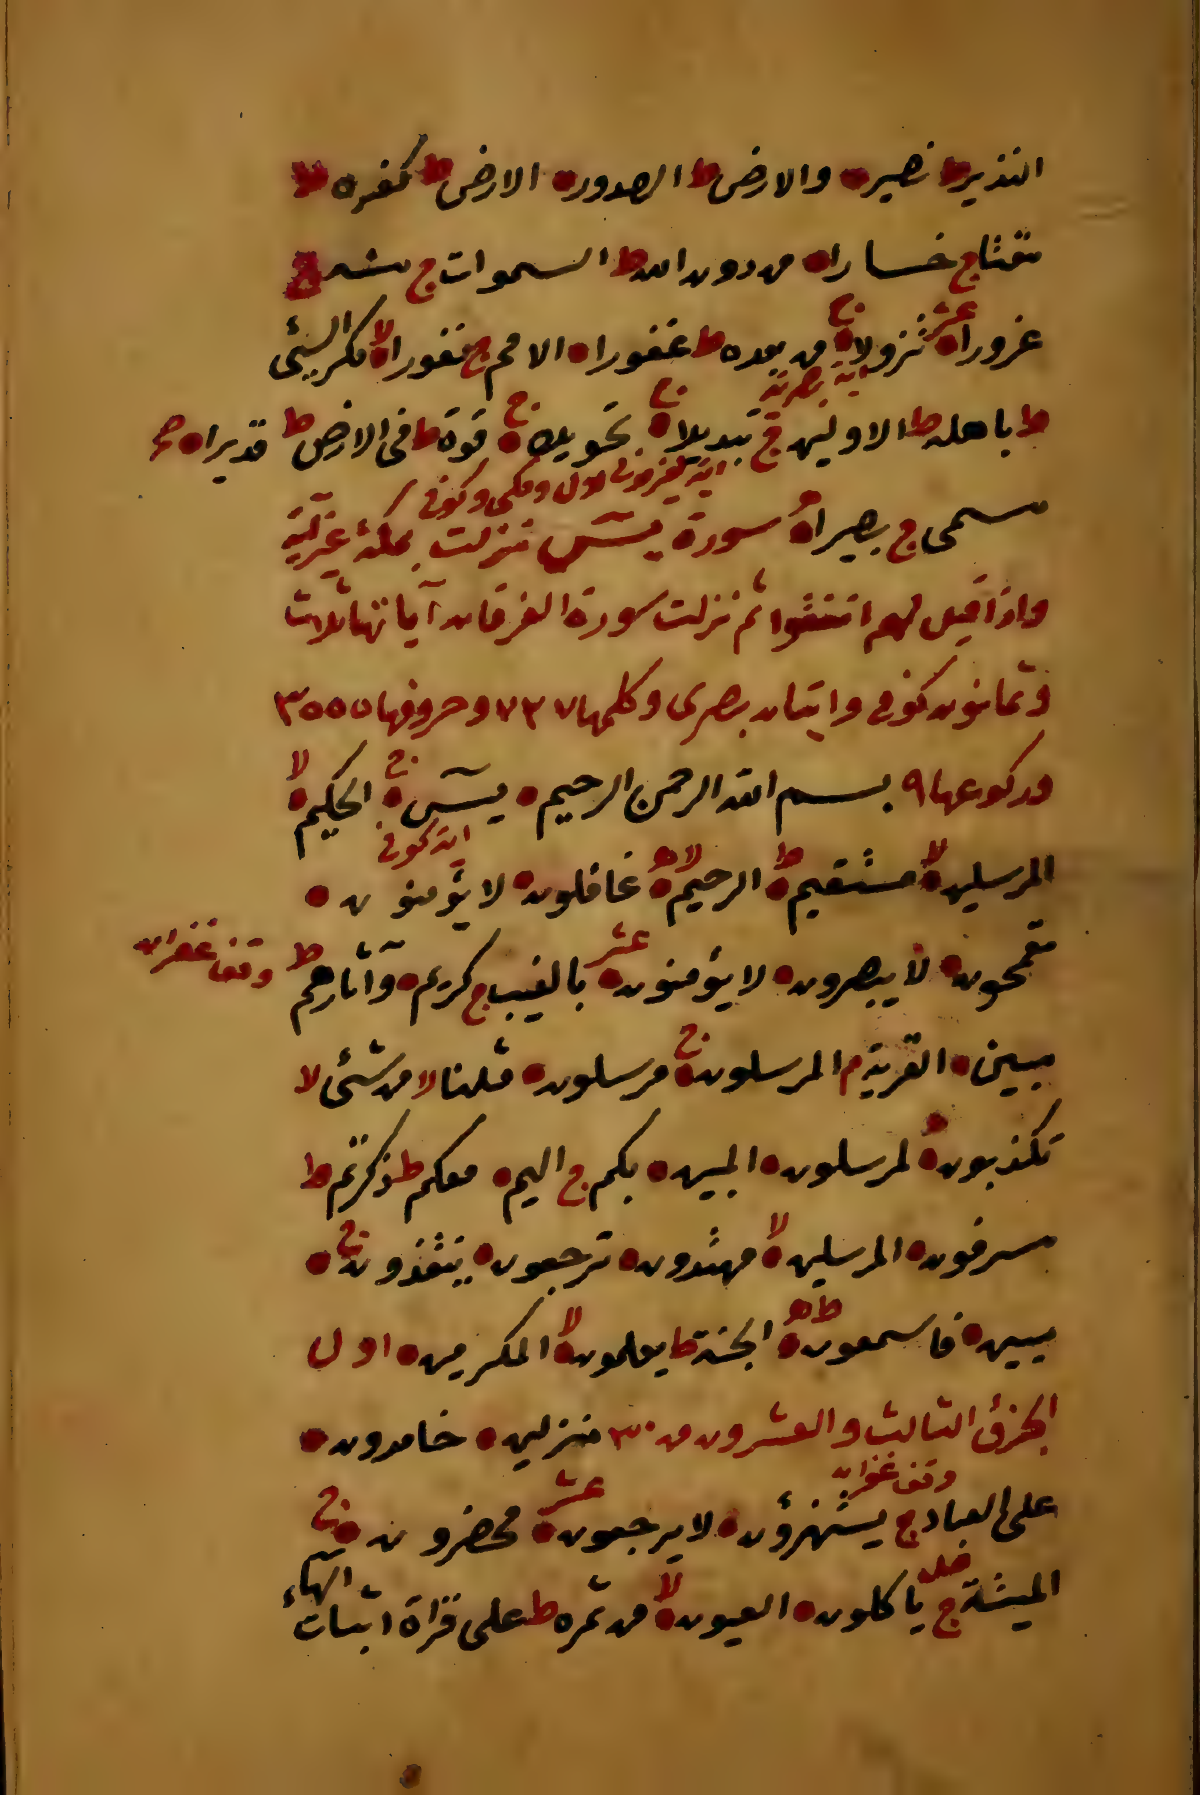 النذير ط نصير ٥ والارض ط الصدور ٥ الارض ط كفره ط
مقتا ج خسارا ٥ من دون الله ط السموات ج منه ج
عشر ج
غرورا ٥ نزولا ٥ من بعده ط غفورا ٥ الامم ج نفورا ٥ لا مكر السيئ
اية بصرية ج ج
ط باهله ط الاولين ج تبديلا ٥ تحويلا ٥ قوة ط فى الارض ط قديرا ٥
اية
مسمى ج بصيرا ٥ سورة يس نزلت بمكة غير آية
واذا قيل لهم انفقوا ثم نزلت سورة الفرقان آياتها ثلاث
وثمانون كوفى واثنان بصرى وكلمها ٧٢٧ وحروفها ٣٠٠٠
وركوعها ٩ بسم الله الرحمن الرحيم ٥ يس ٥ ج الحكيم ٥ لا
اية كوفى
المرسلين ٥ لا مستقيم ٥ ط الرحيم ٥ لا غافلون ٥ لا يؤمنون ٥
مقمحون ٥ لا يبصرون ٥ لا يؤمنون ٥ عشر بالغيب ج كريم ٥ وآثارهم ط وقف غفران
مبين ٥ القرية م المرسلون ٥ ج مرسلون ٥ مثلنا لا من شئ لا
تكذبون ٥ لمرسلون ٥ المبين ٥ بكم ج اليم ٥ معكم ط ذكرتم ط
مسرفون ٥ المرسلين ٥ لا مهتدون ٥ ترجعون ٥ ينقذون ٥ ج
مبين ٥ فاسمعون ٥ ط الجنة ط يعلمون ٥ لا المكرمين ٥ اول
الجزؤ الثالث والعشرون من ٣٠ منزلين ٥ خامدون ٥
وقف غفران
على العباد ج يستهزؤن ٥ لا يرجعون ٥ عشر محضرون ٥ ج
الميتة ج ياكلون ٥ العيون ٥ لا من ثمره ط على قراة اثبات الهاء